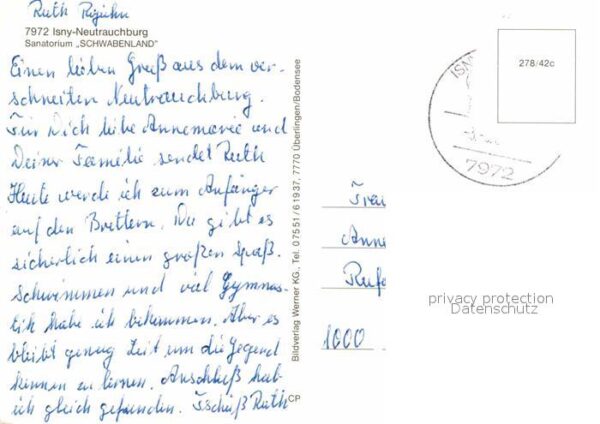 Ruth
7972 Isny-Neutrauchburg
Sanatorium „SCHWABENLAND"
Einen lieben Gruß aus dem ver-
schneiten Neutrauchburg.
Für Dich liebe Annemarie und
Deiner Familie sendet Ruth
Heute werde ich zum Anfänger
auf den Brettern. Da gibt es
sicherlich einen großen Spaß.
Schwimmen und viel Gymnas-
tik habe ich bekommen. Aber es
bleibt genug Zeit um die Gegend
kennen zu lernen. Anschluß hab
ich gleich gefunden. Tschüß Ruth
CP
Bildverlag Werner KG., Tel. 07551/61937, 7770 Überlingen/Bodensee
278/42c
7972
Frau
Anne
1000
privacy protection
Datenschutz